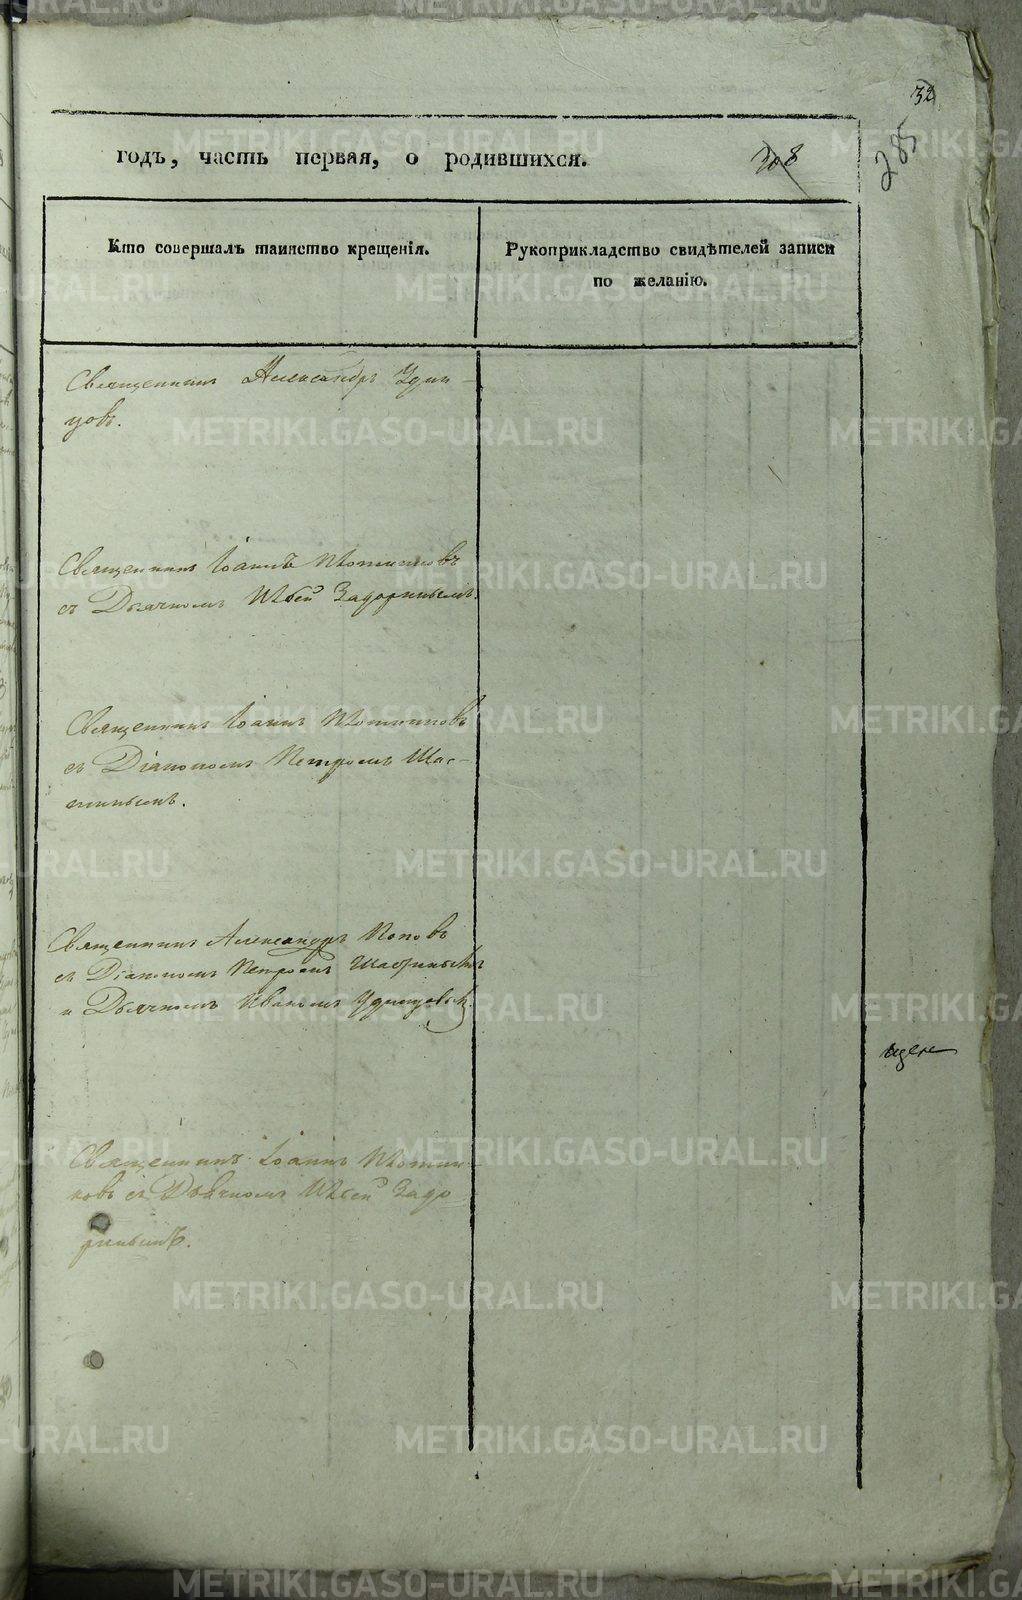 32
285
годъ, часть первая, о родившихся.
308
Кто совершалъ таинство крещенія.
Рукоприкладство свидѣтелей записи
по желанію.
Священникъ Александръ Удин-
цовъ.
Священникъ Іоаннъ
съ Дьячкомъ Задоринымъ.
Священникъ Іоаннъ
съ Діакономъ Петромъ Шас-
тинымъ.
Священникъ Александръ Поповъ
съ Діакономъ Петромъ Шастинымъ
и Дьячкомъ Иваномъ Удинцовымъ.
Священникъ Іоаннъ
съ Дьячкомъ Задо-
ринымъ.
METRIKI.GASO-URAL.RU